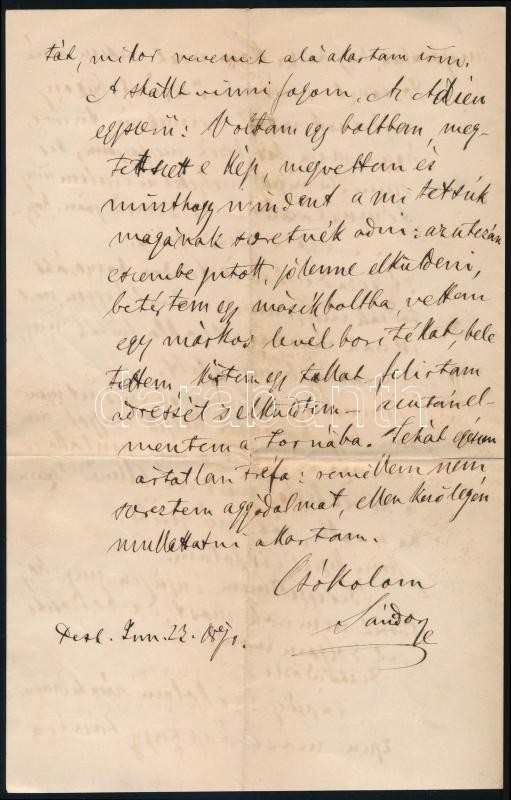 tát, mikor nevemet alá akartam írni.
A skállt vinni fogom. Az
egyszerű: Voltam egy boltban, meg-
tettszett e kép, megvettem és
minthogy mindent a mi tetsük
magának szeretnék adni: az utczán
eszembe jutott, jó lenne elküldeni,
betértem egy másik boltba, vettem
egy márkás levél boritékat, bele
tettem, kértem egy tollat, felirtam
adressét s elküldtem – azután el-
mentem a tornába. Tehát egészen
ártatlan tréfa: remélem nem
szereztem aggodalmat, ellenkezőleg én
mulattatni akartam.
Csókolom
Sándor
Pest. Jun. 23.
darabanth